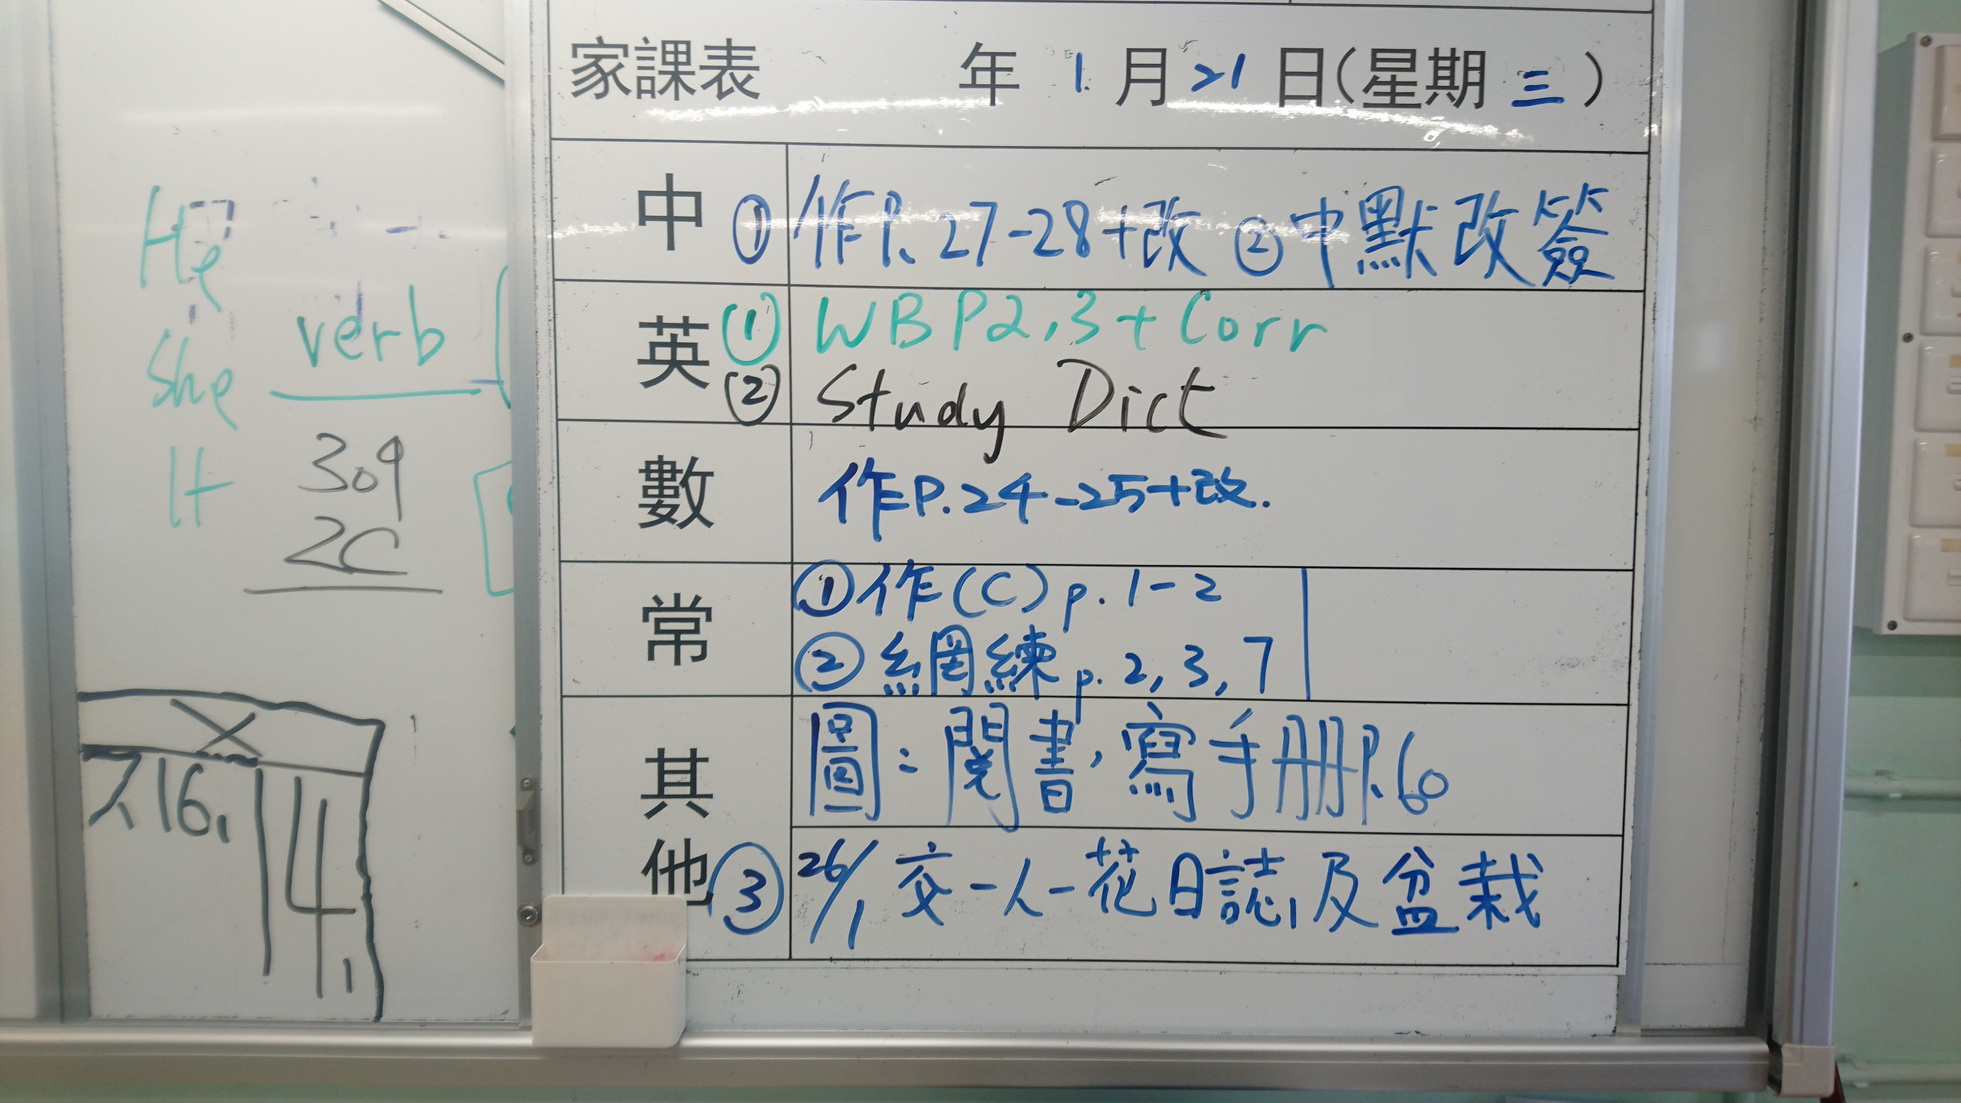 He
She
It
verb
309
2C
X
16.
4
家課表 年 1 月 21 日(星期 三)
中 ① 作P.27-28+改 ② 中默改簽
英 (1) WB P2,3 + Corr
(2) Study Dict
數 作P.24-25+改.
常 ① 作(C) p.1-2
② 網練 p.2,3,7
其他 圖：閱書，寫手册P.60
③ 26/1 交一人一花日誌及盆栽